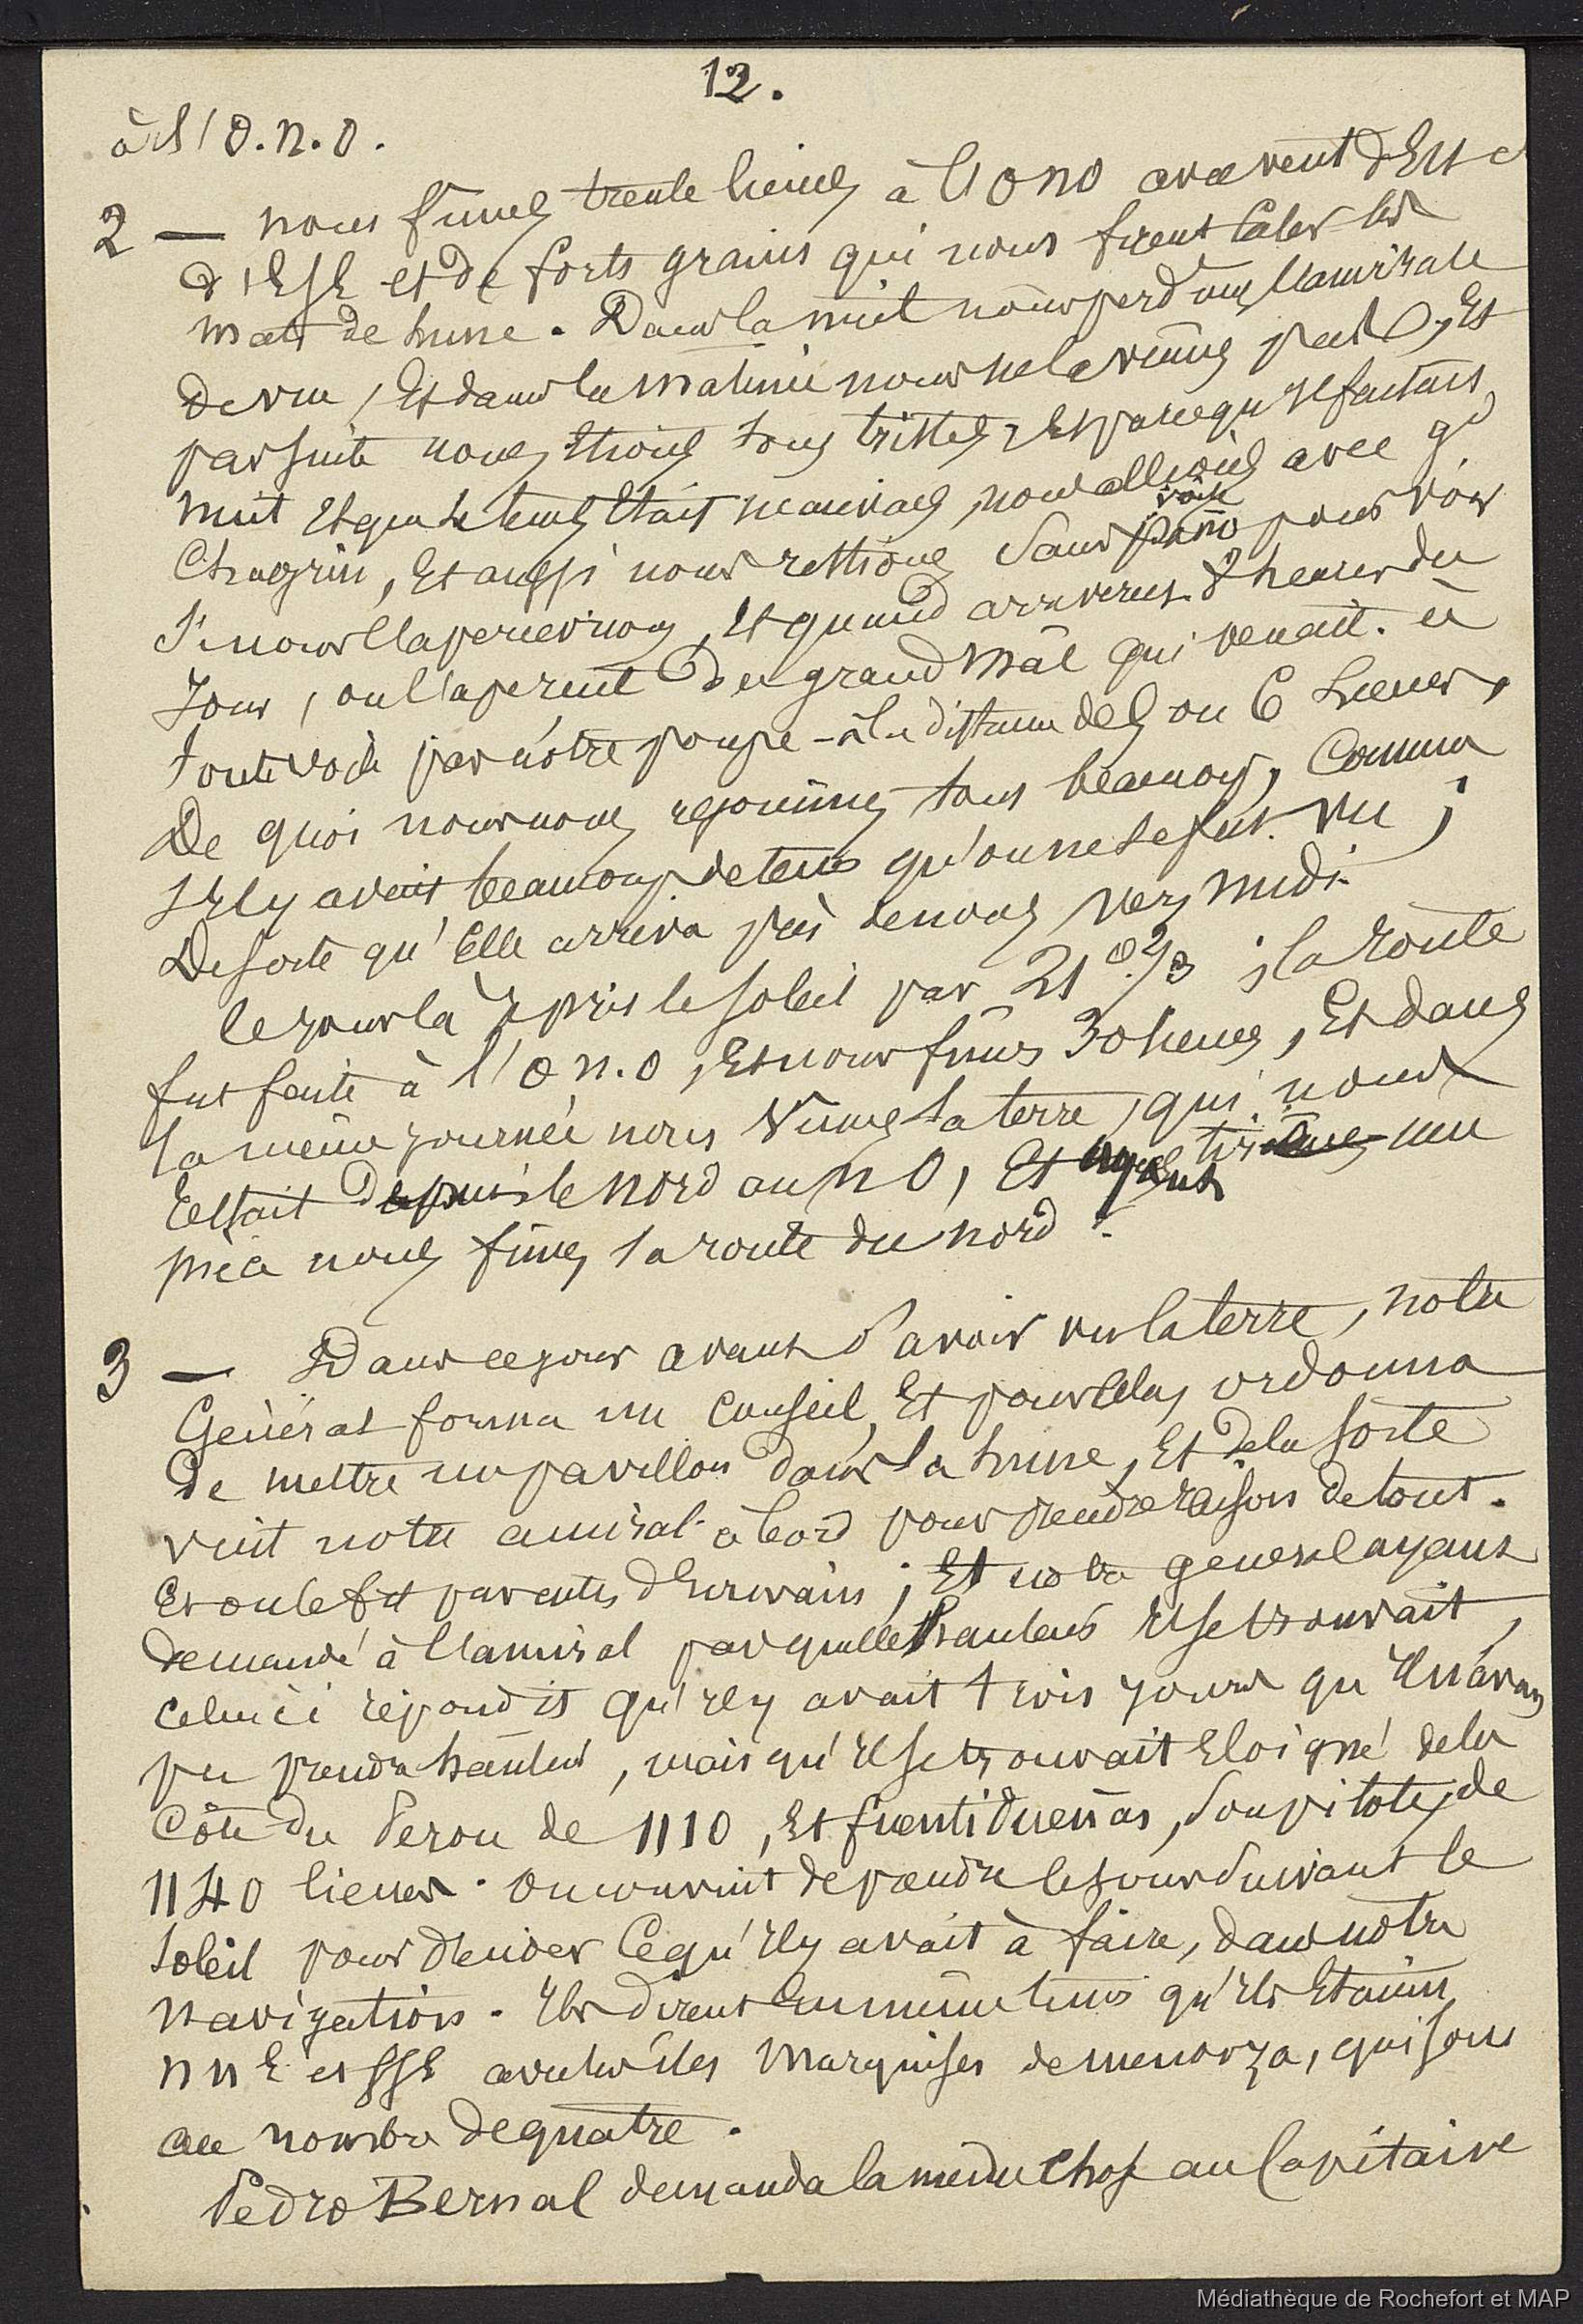 12.
à l'O.N.O.
2 — nous fimes trente lieues à l'ONO avec vent d'Est et
d'ESE et de forts grains qui nous firent caler les
mats de hune. Dans la nuit nous perdimes l'amirale
de vue, Et dans la matinée nous ne la vimes pas, Et
par suite nous étions tous tristes, Et parcequ'il faisait
nuit et que le tems était mauvais, nous allions avec gd
Chagrin, Et aussi nous restions sans voile pour voir
Si nous l'apercevions, Et quand arriverent 8 heures du
Jour, on l'aperçut du grand mât qui venait à
toute voile par notre poupe à la distance de 5 ou 6 lieues,
De quoi nous nous rejouimes tous beaucoup, Comme
s'il y avait beaucoup de tems qu'on ne se fut vu ;
De sorte qu'Elle arriva près de nous vers midi.
Ce jour là Je pris le soleil par 21° 2/3 ; la route
fut faite à l'O N.O, Et nous fimes 30 lieues, Et dans
la même journée nous vimes la terre, qui nous
restait depuis le nord au NO, Et ayant tiré une
pièce nous fimes la route du nord.
3 — Dans ce jour avant d'avoir vu la terre, notre
Général forma un Conseil, Et pour cela, ordonna
de mettre un pavillon dans la hune, Et de la sorte
vint notre amiral à bord pour rendre raison de tout.
Et on le fit par entes d'Ecrivain ; Et notre general ayant
demandé à l'amiral par quelle hauteur il se trouvait,
celui ci répondit qu'il y avait trois jours qu'il n'avait
pu prendre hauteur, mais qu'il se trouvait Eloigné de la
Côte du Perou de 1110, Et fuentidueñas, son pilote, de
1140 lieues. On convint de prendre le jour suivant le
soleil pour décider Ce qu'il y avait à faire, dans notre
navigation. Ils dirent En même tems qu'ils Etaient
NNE et SSE avec les iles Marquises de menoza, qui sont
au nombre de quatre.
Pedro Bernal demanda la même chose au Capitaine
Médiathèque de Rochefort et MAP